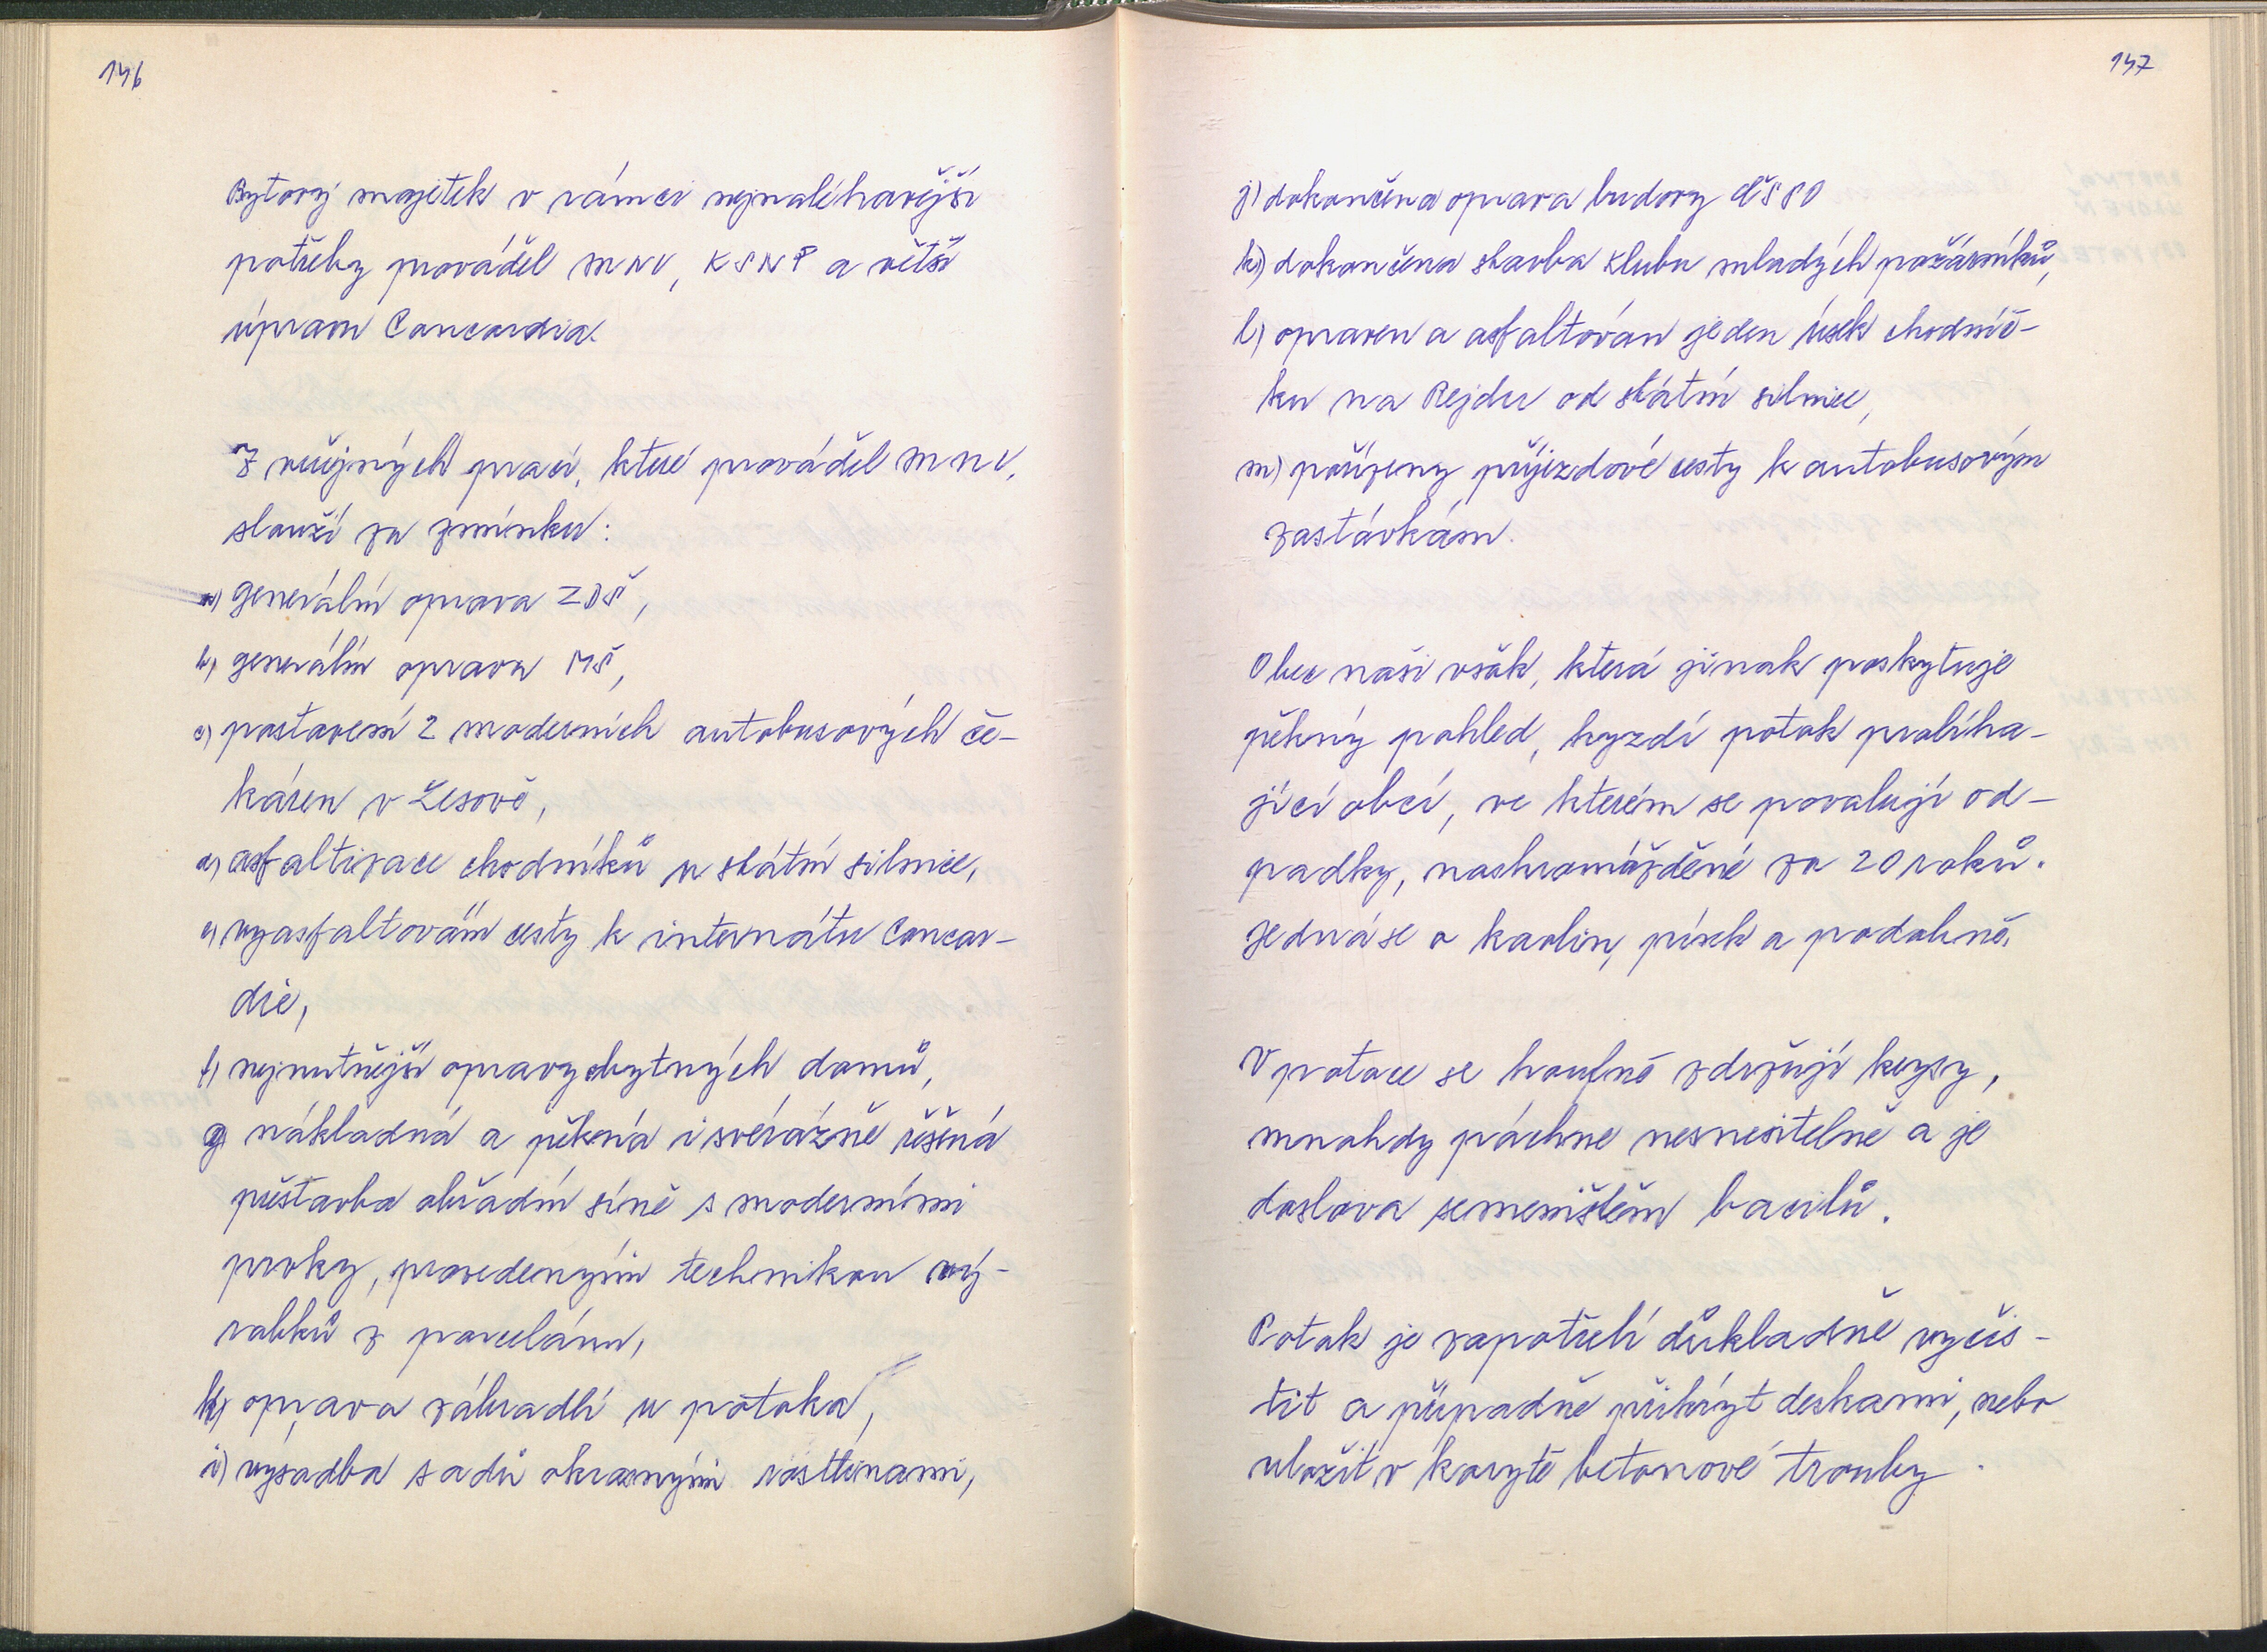 146
Bytový majetek v rámci nejnaléhavější
potřeby prováděl MNV, KSNP a větší
úpravu Concordia.
Z veřejných prací, které prováděl MNV,
slouží za zmínku:
a) generální oprava ZDŠ,
b) generální oprava MŠ,
c) postavení 2 moderních autobusových če-
káren v Lesově,
d) asfaltizace chodníků u státní silnice,
e) vyasfaltování cesty k internátu Concor-
die,
f) nejnutnější opravy obytných domů,
g) nákladná a pěkná i svérázně řešená
přestavba obřadní síně s moderními
prvky, provedenými technikou vý-
robků z porcelánu,
h) oprava zábradlí u potoka,
i) vysadba sadů okrasnými rostlinami,
147
j) dokončena oprava budovy
k) dokončena stavba klubu mladých požárníků,
l) opraven a asfaltován jeden úsek chodníč-
ku na Rejdu od státní silnice,
m) pořízeny příjezdové cesty k autobusovým
zastávkám.
Obec naši však, která jinak poskytuje
pěkný pohled, hyzdí potok probíha-
jící obcí, ve kterém se povalují od-
padky, nashromážděné za 20 roků.
Jedná se o kaolin, písek a podobně.
V potoce se houfně zdržují krysy,
mnohdy páchne nesnesitelně a je
doslova semeništěm bacilů.
Potok je zapotřebí důkladně vyčis-
tit a případně přikrýt deskami, nebo
uložit v korytě betonové trouby.